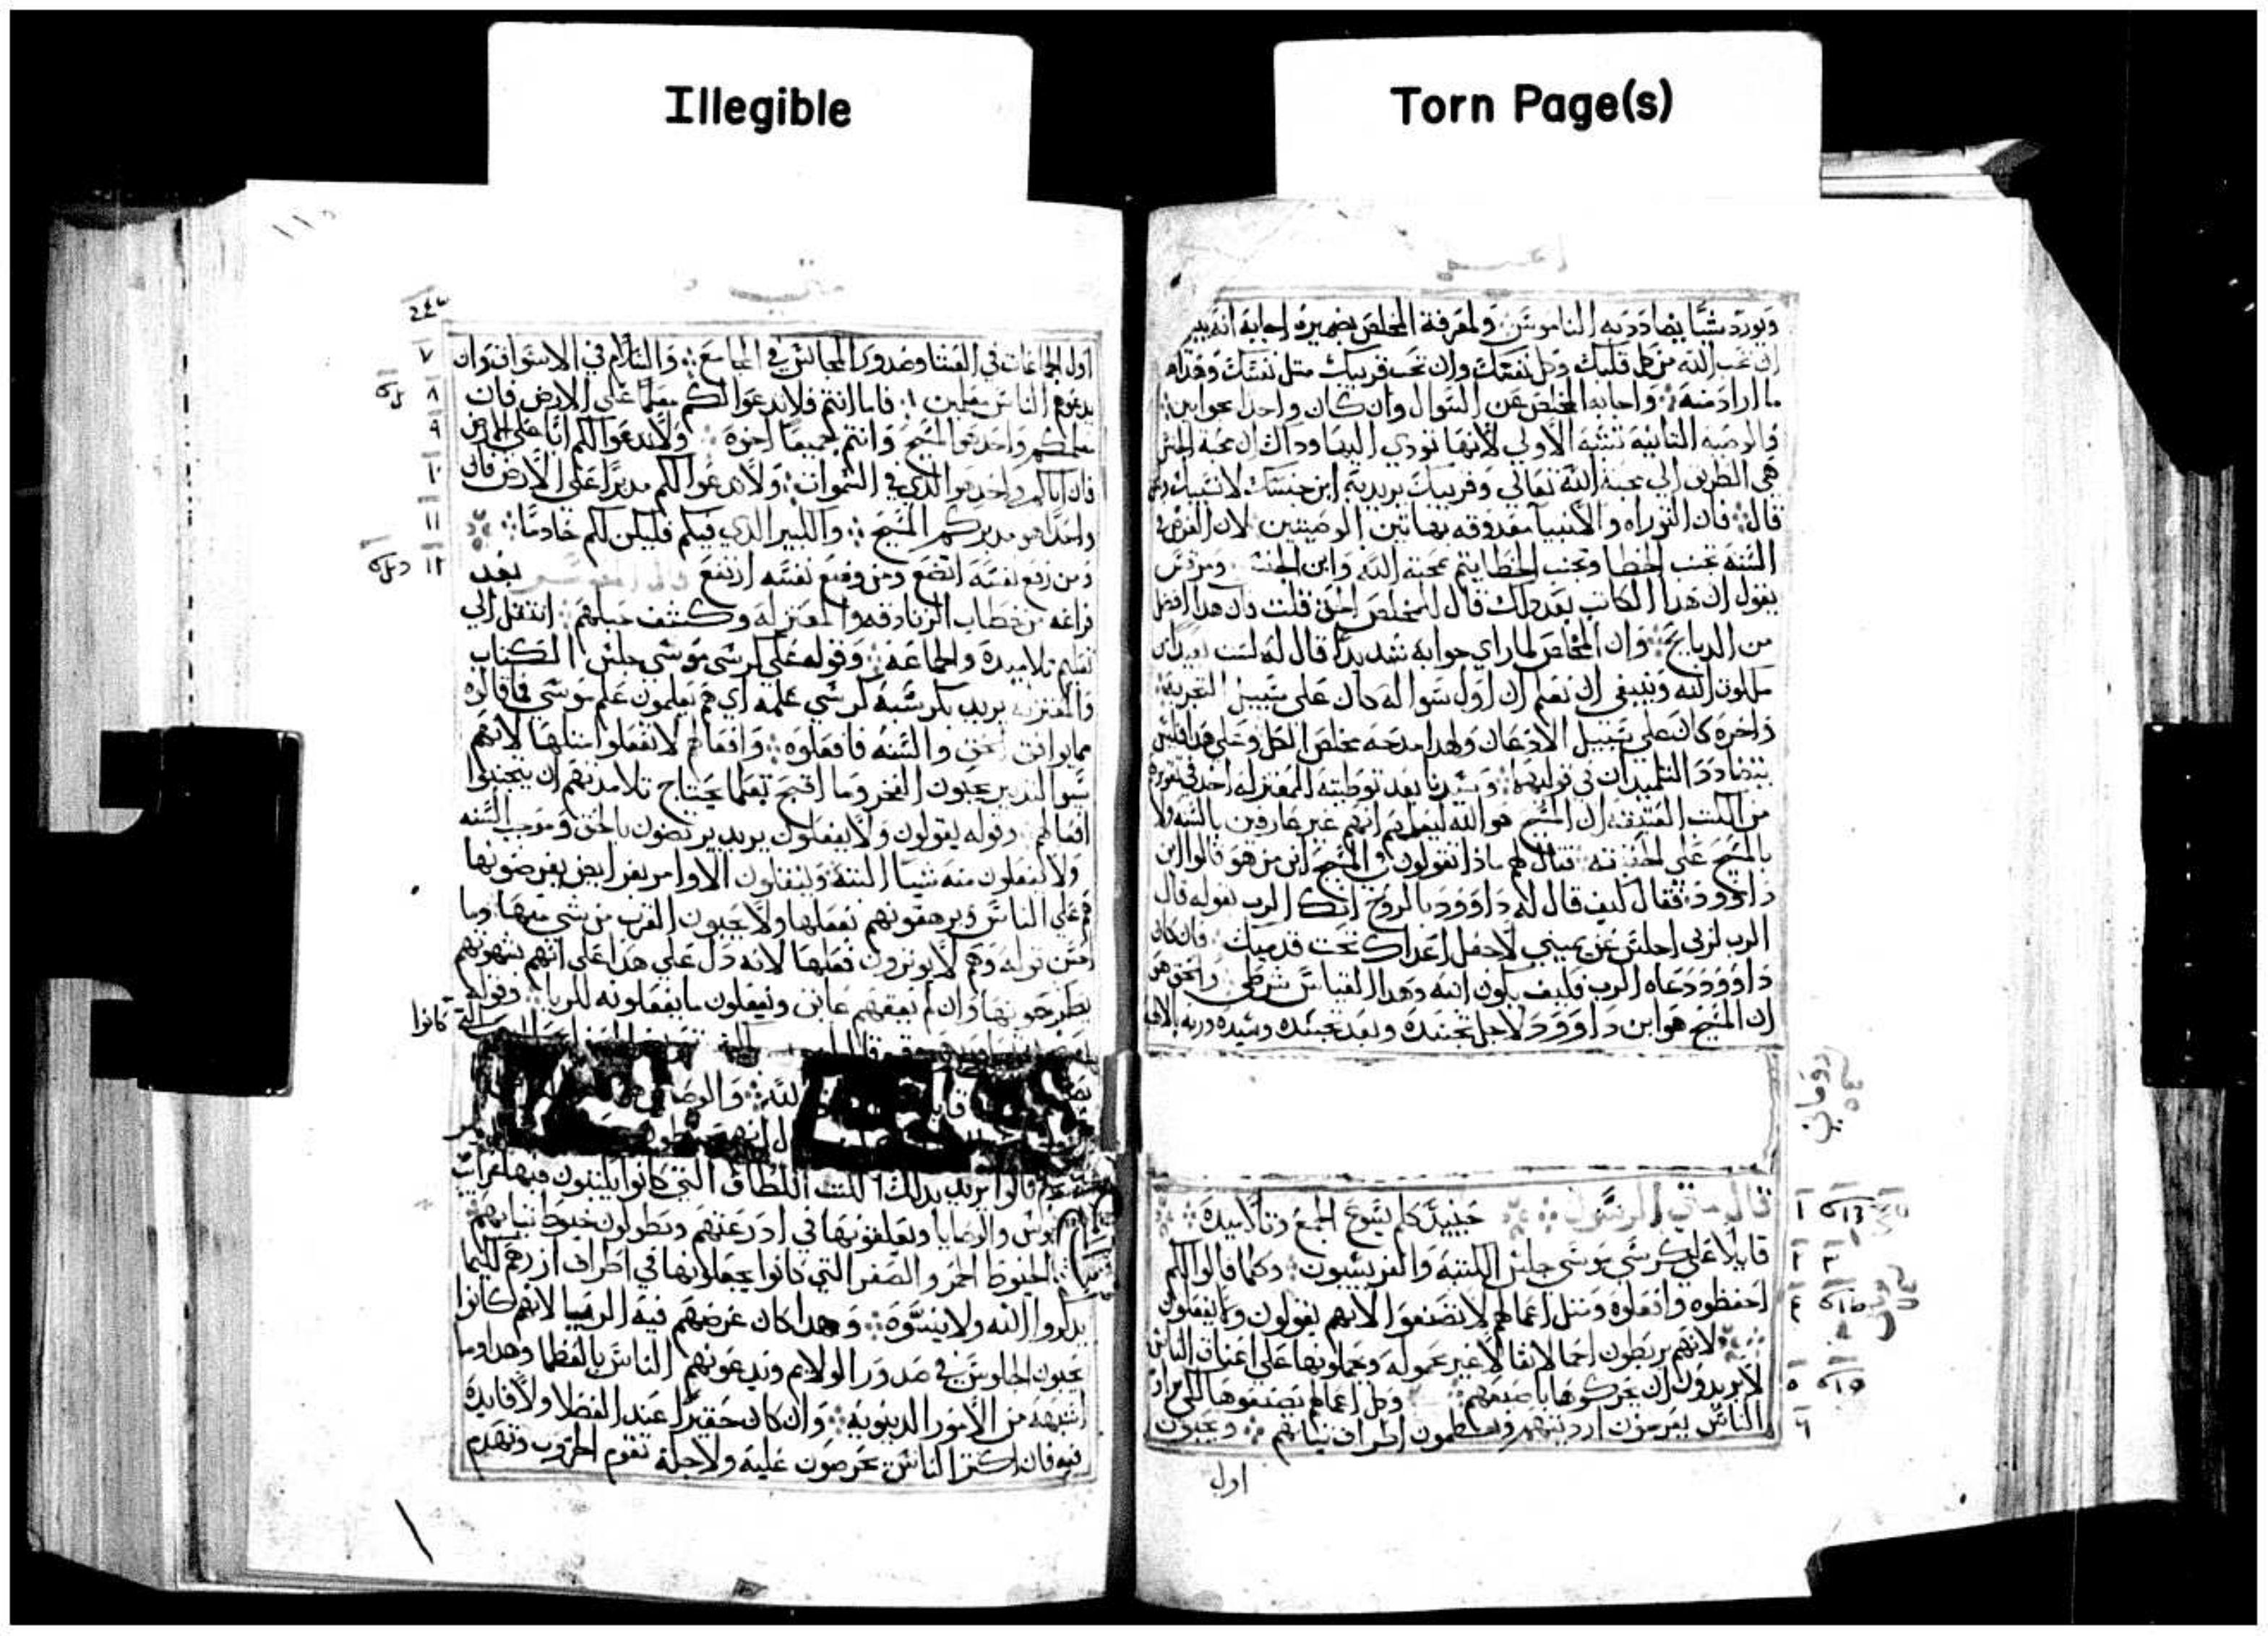 Illegible
Torn Page(s)
ويورد شيا يضادد به الناموس ولمعرفة المخلص بضميره اجابه انه
ان تحب الله من كل قلبك وكل نفسك وان تحب قريبك مثل نفسك وهذا
ما اراد منه واجابه المخلص عن السوال وان كان واحدا بجوابين
والوصيه التانيه تشبه الاولي لانها تودي اليها وداك ان محبة الجنس
هي الطريق الي محبة الله تعالي وقريبك يريد به ابن جنسك لا نسيبك
قال فان التوراه والانبيا معدوقه بهاتين الوصيتين لان الغرض في
السنه تجنب الخطا وتجنب الخطا يتم بمحبة الله وابن الجنس ومرقس
يقول ان هدا الكاتب بعد دلك قال للمخلص الحق قلت ان هدا افضل
من الدبايح وان المخلص لما راي جوابه شديدا قال له لست بعيد من
ملكوت الله وينبغي ان تعلم ان اول سواله كان علي سبيل التجربة
واخره كان علي سبيل الادعان ولهدا مدحه مخلص الكل وعلي هدا فليس
يتضادد التلميدان في قوليهما وسيدنا بعد توطيته المعتزله اخد في تقريره
من الكتب العتيقه ان المسيح هو الله ليعلم انهم غير عارفين بالسنه ولا
بالمسيح علي الحقيقه فقال لهم مادا تقولون في المسيح ابن من هو قالوا ابن
داوود فقال كيف قال له داوود بالروح انك الرب بقوله قال
الرب لربي اجلس عن يميني لاجعل اعداك تحت قدميك فان كان
داوود دعاه الرب فكيف يكون ابنه وهدا القياس شرطي والحق هو
ان المسيح هو ابن داوود لاجل تجسده وبعد تجسده وسيده وربه
قال متي الرسول حينيد كلم يسوع الجمع وتلاميده
قايلا علي كرسي موسي جلس الكتبه والفريسيون وكلما قالوا لكم
احفظوه وافعلوه ومثل اعمالهم لا تصنعوا لانهم يقولون ولا يفعلون
لانهم يربطون احمالا ثقالا غير محموله ويحملونها علي اعناق الناس
لا يريدون ان يحركوها باصبعهم وكل اعمالهم يصنعوها لكي يراهم
الناس يعرضون ارديتهم ويعظمون اطراف ثيابهم ويحبون
اول
اول الجماعات في العشا وصدور المجالس في المجامع والسلام في الاسواق وان
يدعوهم الناس معلمين فاما انتم فلا تدعوا لكم معلما علي الارض فان
معلمكم واحد هو المسيح وانتم جميعا اخوه ولا تدعوا لكم ابا علي الارض
فان اباكم واحد هو الدي في السموات ولا تدعوا لكم مدبرا علي الارض فان
واحدا هو مدبركم المسيح والكبير الدي فيكم فليكن لكم خادما
ومن رفع نفسه اتضع ومن وضع نفسه ارتفع بعد
فراغه من خطاب الزنادقه والمعتزله وكشف حيلهم انتقل الي
تعليم تلاميده والجماعه وقوله علي كرسي موسي جلس الكتاب
والمعتزله يريد بكرسيه كرسي علمه اي هم يعلمون علم موسي فما قالوه
مما يوافق الحق والسنه فافعلوه وافعالهم لا تفعلوا مثلها لانهم
سوا التدبير يحبون الفخر وما اقبح بمعلم يحتاج تلامدتهم ان يتجنبوا
افعالهم وقوله يقولون ولا يفعلون يريد يرتضون بالحق وموجب السنه
ولا يفعلون منه شيا البتة ويثقلون الاوامر بفرايض يفرضونها
هم علي الناس ويرهقونهم بفعلها ولا يحبون القرب من شي منها وما
احسن قوله وهم لا يوثرون فعلها لانه دل علي هدا علي انهم بشهوتهم
يطرحونها وان لم يعقهم عايق ويفعلون ما يفعلونه للريا وقوله
كانوا
قالوا يريد بدلك الكتب اللطاف التي كانوا يكتبون فيها
والوصايا ويعلقونها في ادرعتهم ويطولون خيوط ثيابهم
الخيوط الحمر والصفر التي كانوا يجعلونها في اطراف ازرهم لكيما
يدكروا الله ولا ينسوه وهدا كان غرضهم فيه الريا لانهم كانوا
يحبون الجلوس في صدور الولايم ويدعونهم الناس بالعظما وهدا وما
اشبهه من الامور الدنيويه وان كان حقيرا عند الفضلا ولا فايدة
فيه فان اكثر الناس يحرصون عليه ولاجله تقوم الحروب وتهدم